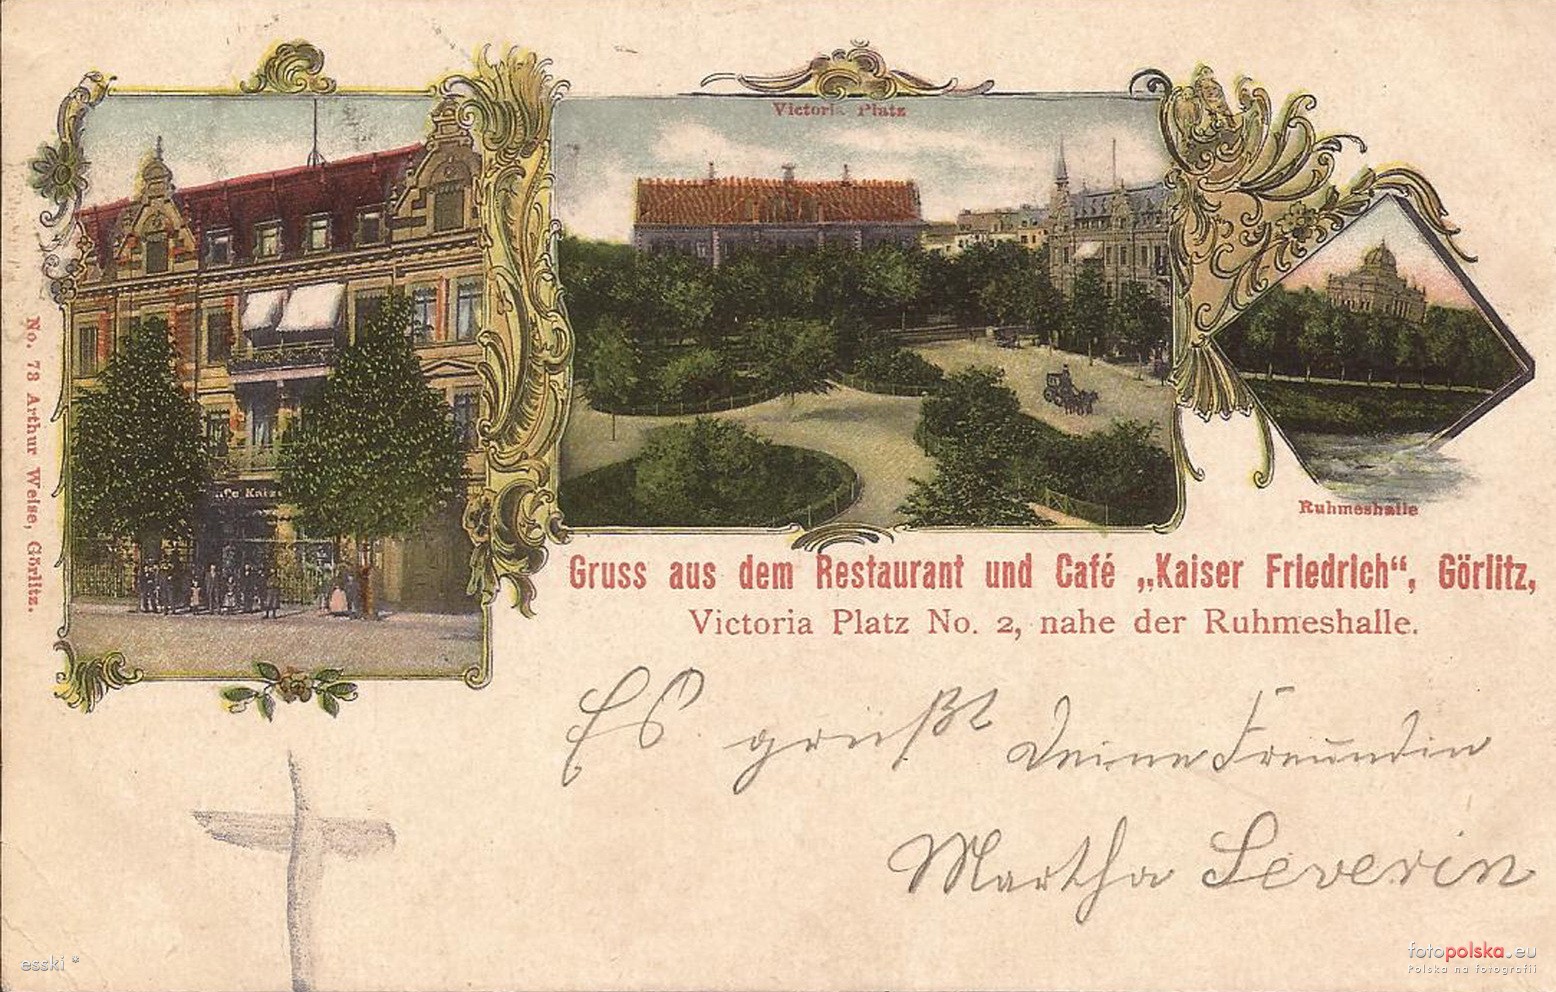 Victoria Platz
Ruhmeshalle
Café Kaiser
No. 73 Arthur Weise, Görlitz.
Gruss aus dem Restaurant und Café „Kaiser Friedrich“, Görlitz,
Victoria Platz No. 2, nahe der Ruhmeshalle.
Es grüßt Deine Freundin
Martha Severin
esski *
fotopolska.eu
Polska na fotografii